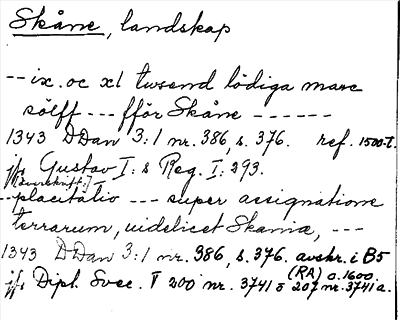 Skåne, landskap
-- ix. oc xl twsend lödiga marc
sölff --- ffför Skåne ------
1343 DDan 3:1 nr. 386, s. 376. ref. 1500-t.
jfr Gustav I:s Reg. I: 293.
[överskrift:]
-- placitatio --- super assignatione
terrarum, uidelicet Skania, ---
1343 DDan 3:1 nr. 386, s. 376. avskr. i B5
(RA) o. 1600.
jfr Dipl. Svec. V 200 nr. 3741 o 207 nr. 3741 a.